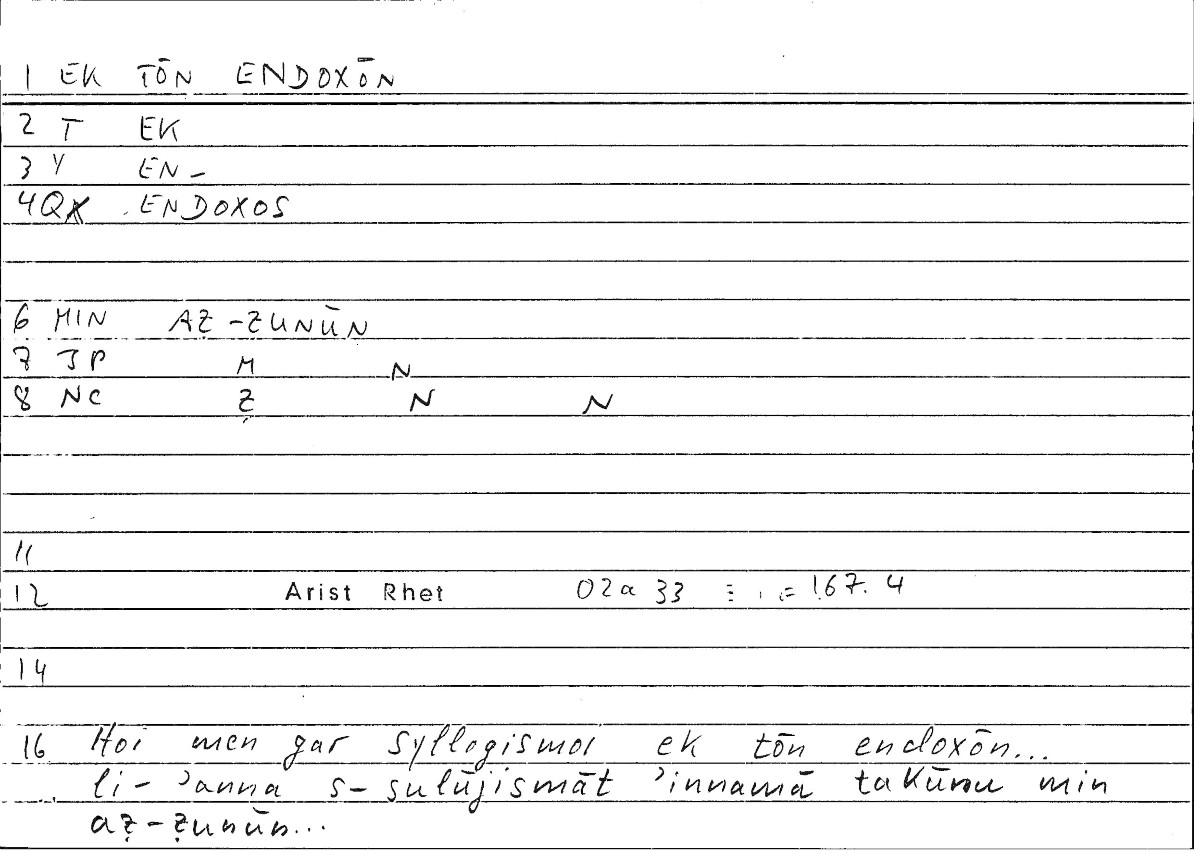 1 EK TŌN ENDOXŌN
2 T EK
3 Y EN-
4 QX ENDOXOS
6 MIN AẒ-ẒUNŪN
7 JP M N
8 NC Ẓ N N
11
12 Arist Rhet 02a 33 = 167.4
14
16 Hoi men gar syllogismoi ek tōn endoxōn...
li-ʾanna s-sulūjismāt ʾinnamā takūnu min
aẓ-ẓunūn...